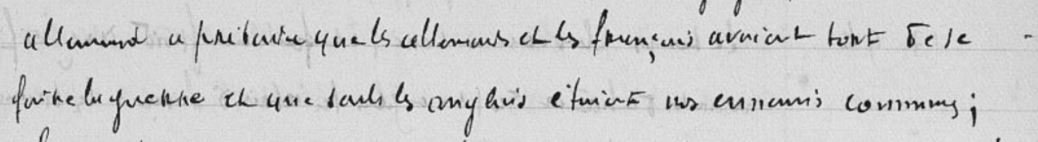 allemand a prétendre que les allemands et les français avaient tort de se
faire la guerre et que seuls les anglais étaient nos ennemis communs ;